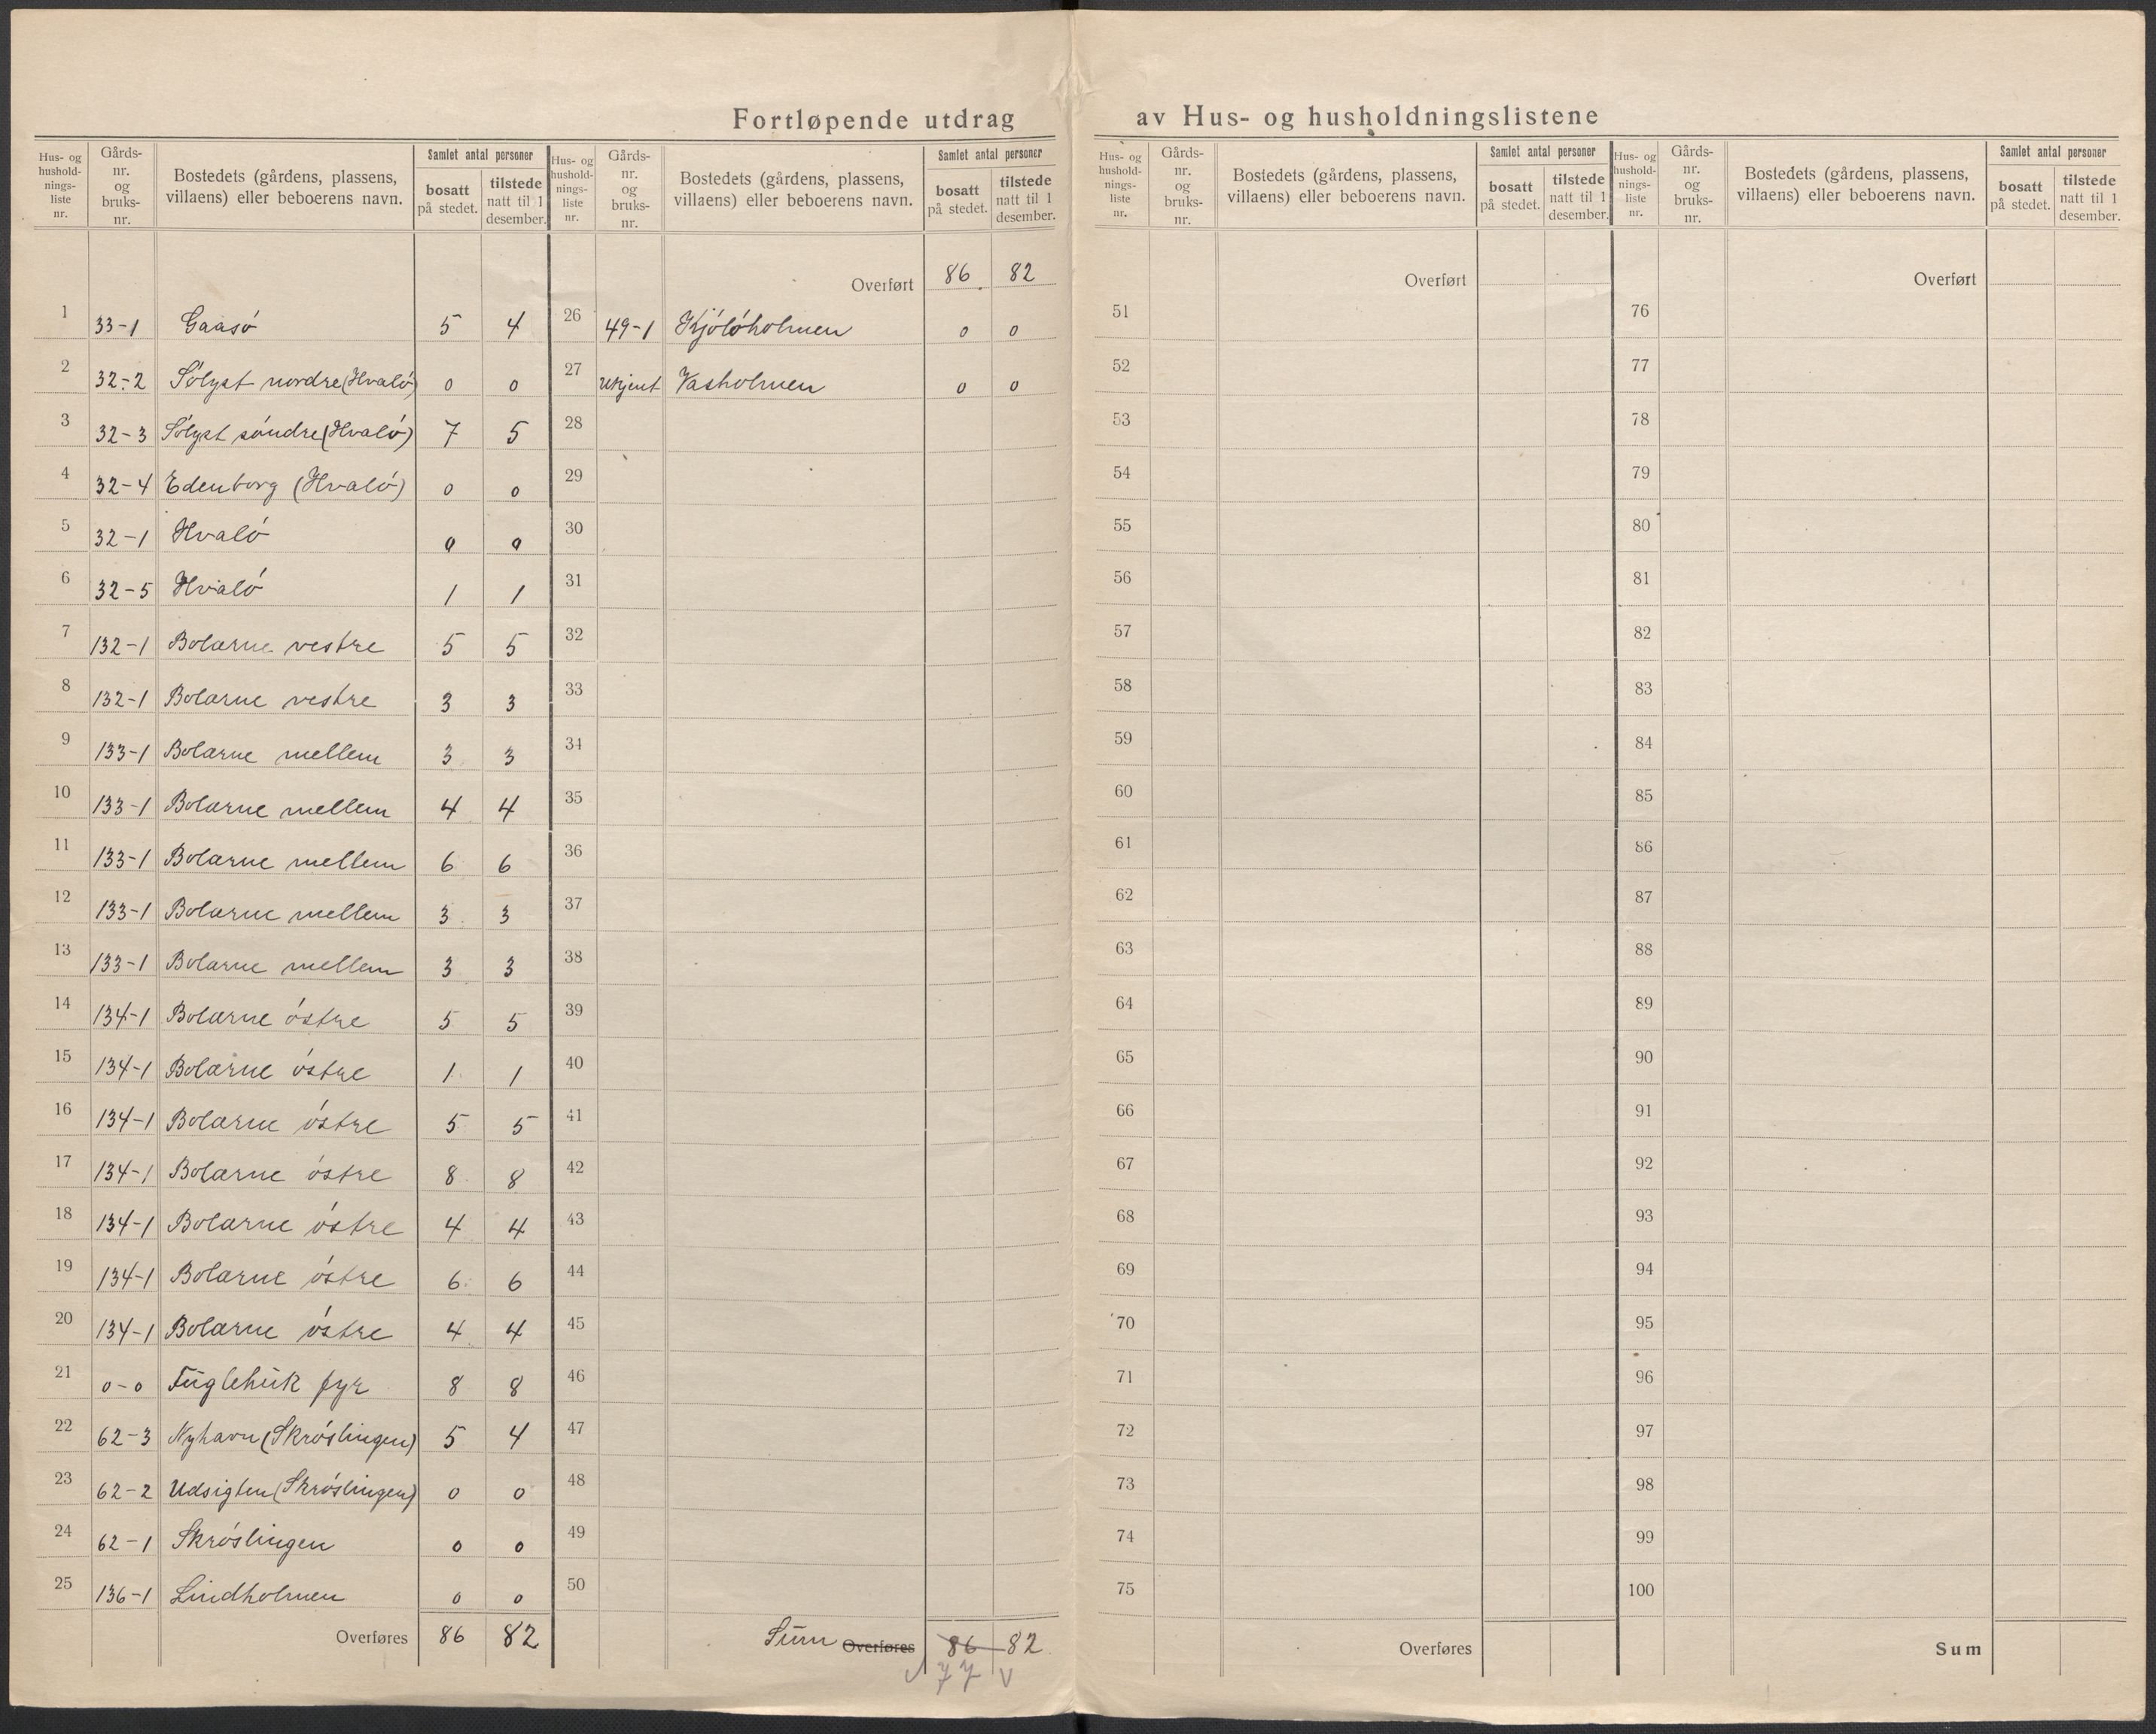 Fortløpende utdrag av Hus- og husholdningslistene
Hus- og hushold-nings-liste nr. | Gårds-nr. og bruks-nr. | Bostedets (gårdens, plassens, villaens) eller beboerens navn. | Samlet antal personer | bosatt på stedet. | tilstede natt til 1 desember.
1 33-1 Gaasö 5 4
2 32-2 Sölyst nordre (Hvalö) 0 0
3 32-3 Sölyst söndre (Hvalö) 7 5
4 32-4 Edenborg (Hvalö) 0 0
5 32-1 Hvalö 0 0
6 32-5 Hvalö 1 1
7 132-1 Bolærne vestre 5 5
8 132-1 Bolærne vestre 3 3
9 133-1 Bolærne mellem 3 3
10 133-1 Bolærne mellem 4 4
11 133-1 Bolærne mellem 6 6
12 133-1 Bolærne mellem 3 3
13 133-1 Bolærne mellem 3 3
14 134-1 Bolærne östre 5 5
15 134-1 Bolærne östre 1 1
16 134-1 Bolærne östre 5 5
17 134-1 Bolærne östre 8 8
18 134-1 Bolærne östre 4 4
19 134-1 Bolærne östre 6 6
20 134-1 Bolærne östre 4 4
21 0-0 Fuglehuk fyr 8 8
22 62-3 Nyhavn (Skröslingen) 5 4
23 62-2 Udsigten (Skröslingen) 0 0
24 62-1 Skröslingen 0 0
25 136-1 Lindholmen 0 0
Overføres 86 82
Hus- og hushold-nings-liste nr. | Gårds-nr. og bruks-nr. | Bostedets (gårdens, plassens, villaens) eller beboerens navn. | Samlet antal personer | bosatt på stedet. | tilstede natt til 1 desember.
Overført 86 82
26 49-1 Kjölöholmen 0 0
27 Ukjent Vasholmen 0 0
28
29
30
31
32
33
34
35
36
37
38
39
40
41
42
43
44
45
46
47
48
49
50
Sum Overføres 86 82
77
Hus- og hushold-nings-liste nr. | Gårds-nr. og bruks-nr. | Bostedets (gårdens, plassens, villaens) eller beboerens navn. | Samlet antal personer | bosatt på stedet. | tilstede natt til 1 desember.
Overført
51
52
53
54
55
56
57
58
59
60
61
62
63
64
65
66
67
68
69
70
71
72
73
74
75
Overføres
Hus- og hushold-nings-liste nr. | Gårds-nr. og bruks-nr. | Bostedets (gårdens, plassens, villaens) eller beboerens navn. | Samlet antal personer | bosatt på stedet. | tilstede natt til 1 desember.
Overført
76
77
78
79
80
81
82
83
84
85
86
87
88
89
90
91
92
93
94
95
96
97
98
99
100
Sum